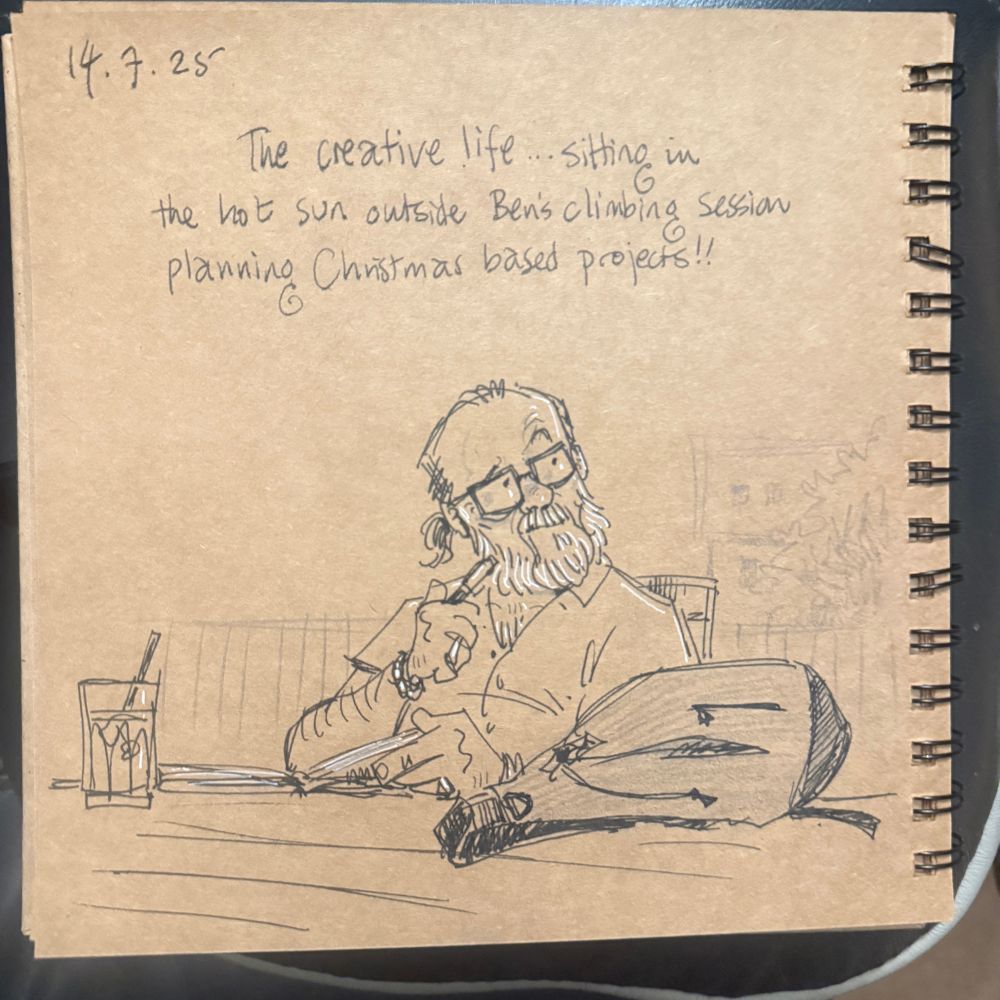 14.7.25
The creative life...sitting in
the hot sun outside Ben's climbing session
planning Christmas based projects!!